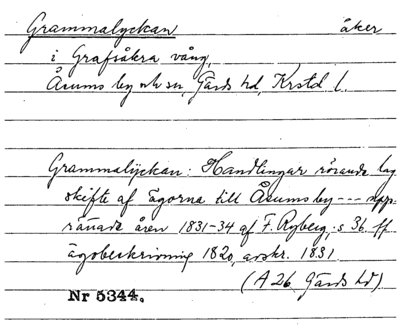 Grammalyckan åker
i Grafsåkra vång,
Åsums by o sn, Gärds hd, Krstd l.
Grammalÿckan: Handlingar rörande lag
skifte af Ägorna till Åsums by --- upp-
rättade åren 1831-34 af F. Ryberg, s 36. ff
ägobeskrivning 1820, avskr. 1831
(A 26 Gärds hd)
Nr 5344.